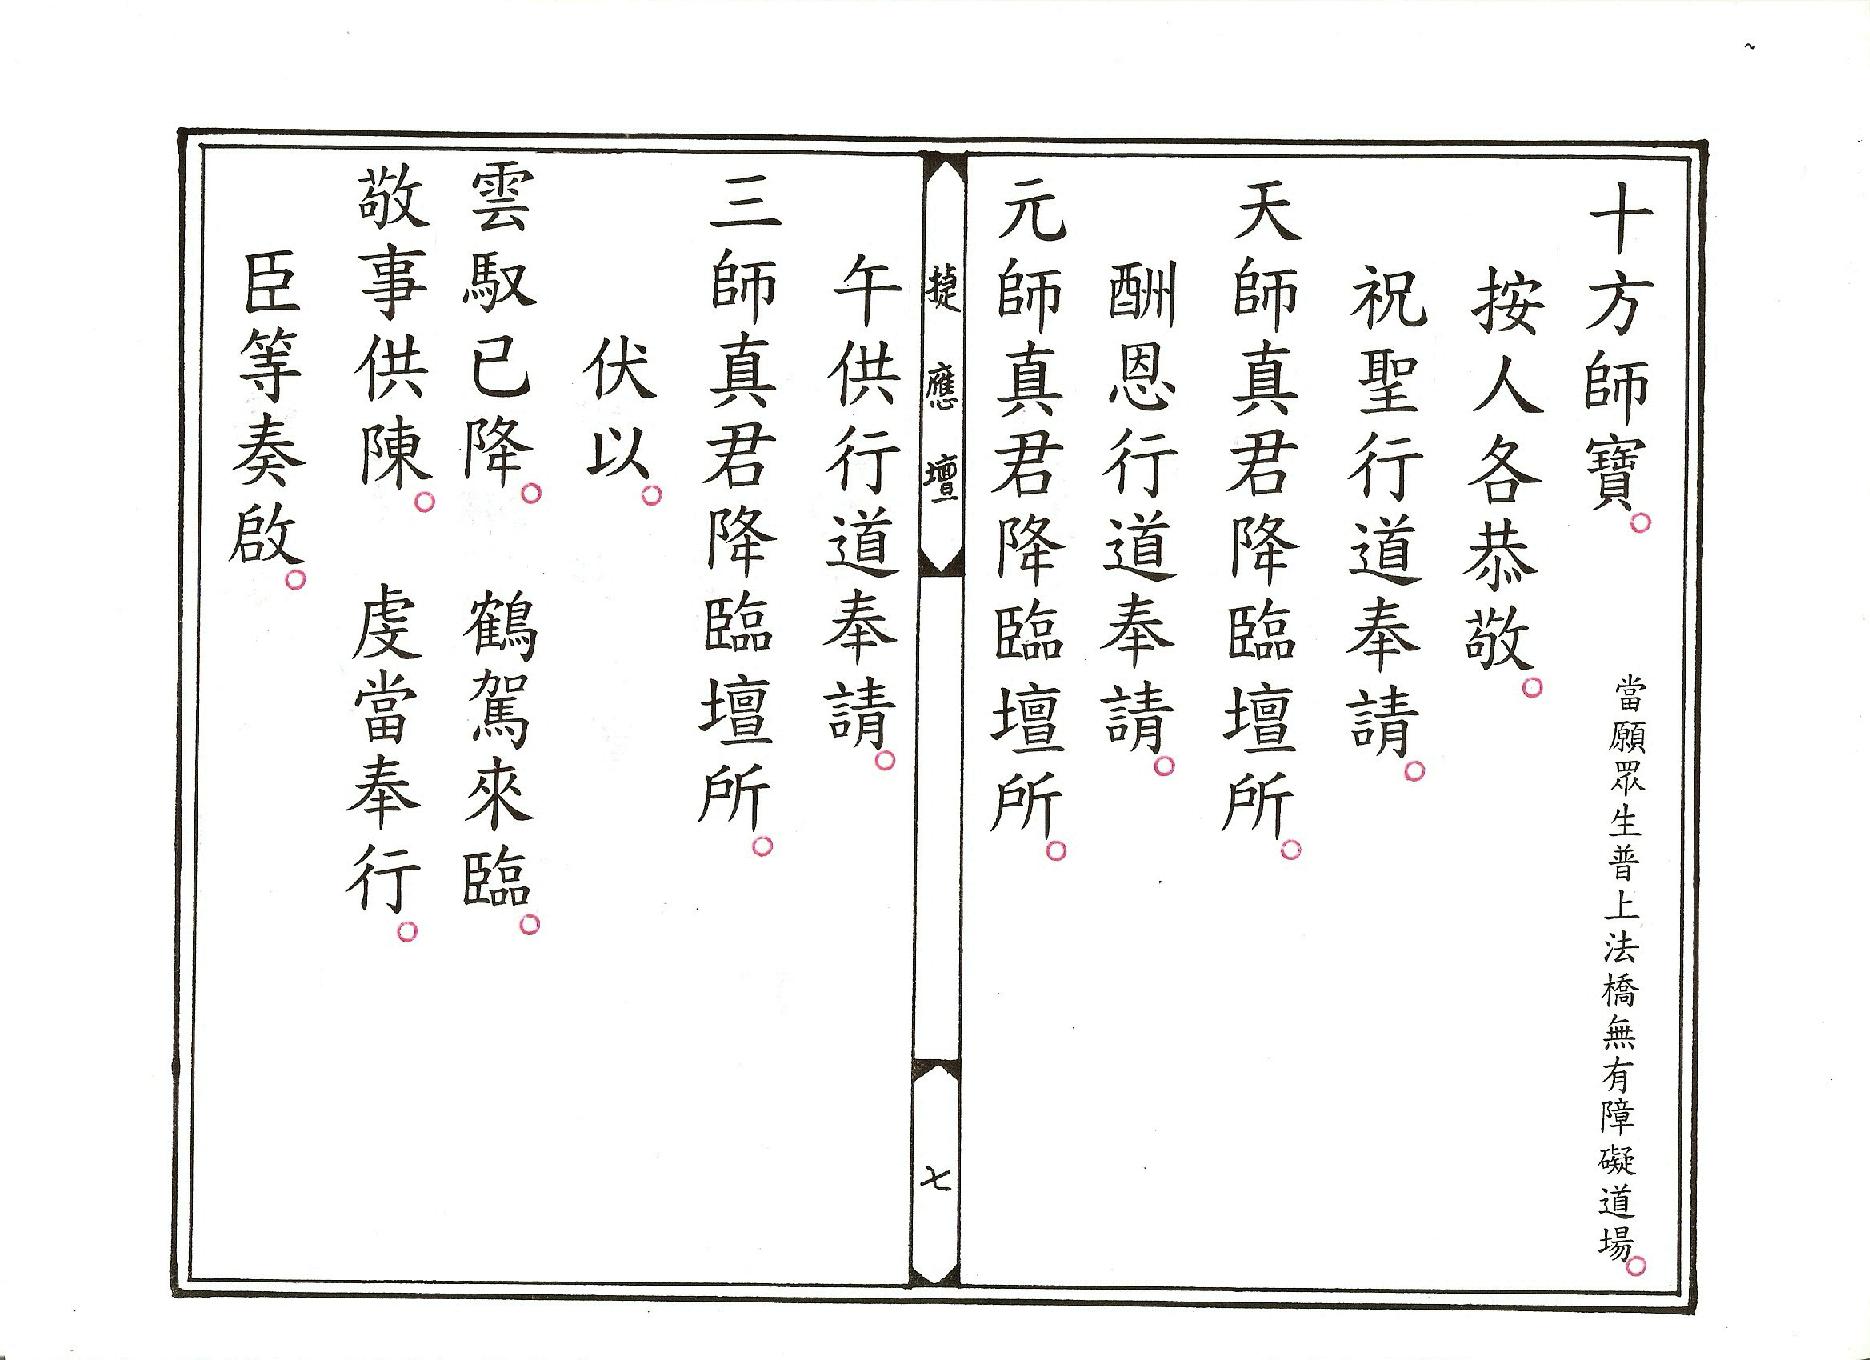 十方師寶。 當願眾生普上法橋無有障礙道場。
按人各恭敬。
祝聖行道奉請。
天師真君降臨壇所。
酬恩行道奉請。
元師真君降臨壇所。
捷應壇 七
午供行道奉請。
三師真君降臨壇所。
伏以。
雲馭已降。 鶴駕來臨。
敬事供陳。 虔當奉行。
臣等奏啟。